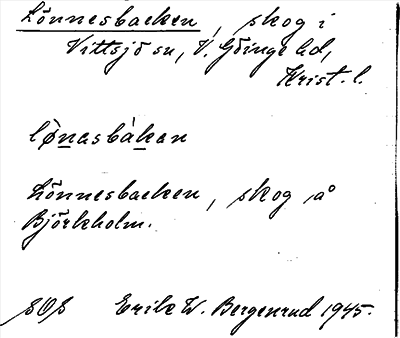 Lönnesbacken, skog i
Vittsjö sn, V. Göinge hd,
Krist. l.
lø̀nasbàkan
Lönnesbacken, skog på
Björkholm.
SOS Erik W. Bergenrud 1945.